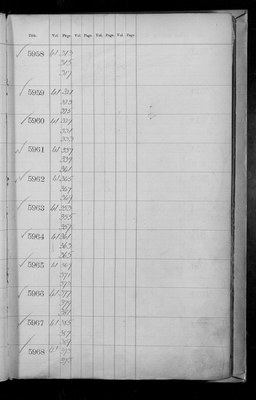 Title. Vol. Page. Vol. Page. Vol. Page. Vol. Page.
5958 61 313
315
317
5959 61 321
323
5960 61 329
331
333
5961 61 337
339
341
5962 61 345
347
349
5963 61 353
355
357
5964 61 361
363
365
5965 61 369
371
373
5966 61 377
379
381
5967 61 385
387
389
5968 61 393
395